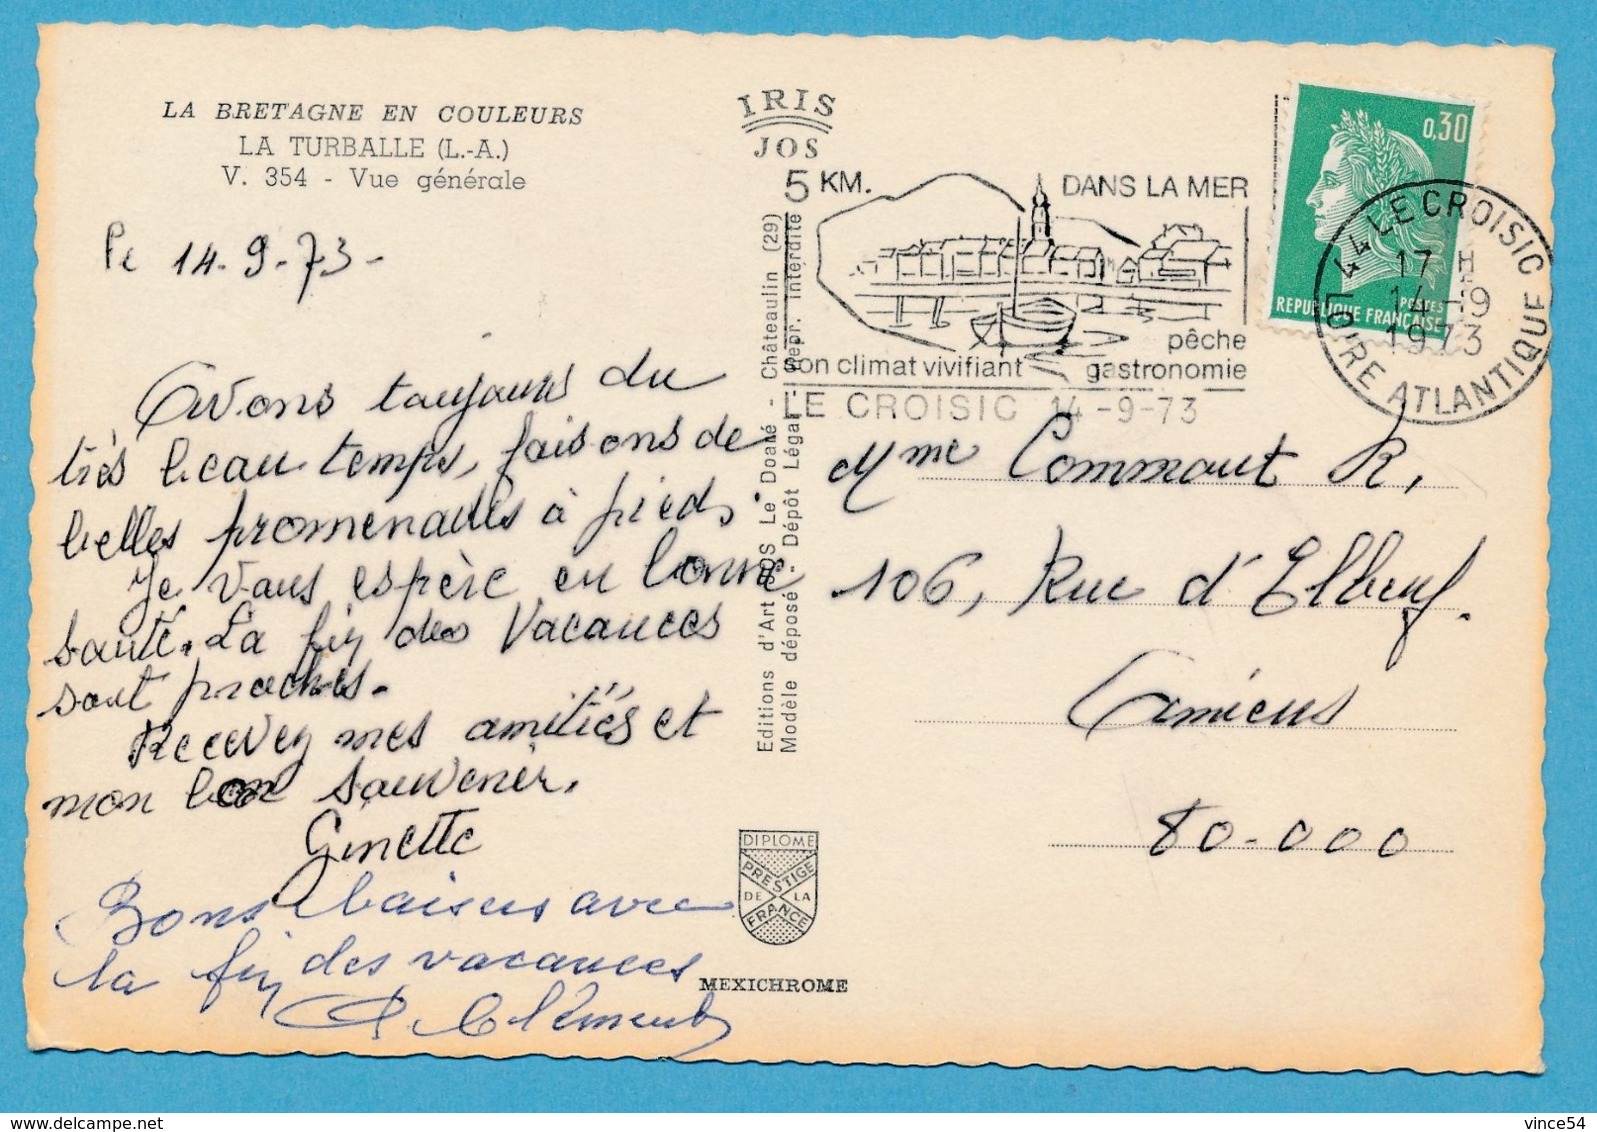 LA BRETAGNE EN COULEURS
LA TURBALLE (L.-A.)
V. 354 - Vue générale
Le 14-9-73-
Avons toujours du
très beau temps, faisons de
belles promenades à pied.
Je vous espère en bonne
santé. La fin des vacances
sont proches.
Recevez mes amitiés et
mon bon souvenir.
Ginette
Bons baisers avec
la fin des vacances
Clément
IRIS
JOS
Editions d'Art JOS Le Doaré - Châteaulin (29)
Modèle déposé - Dépôt Légal - Repr. interdite
DIPLOME
PRESTIGE
DE LA
FRANCE
MEXICHROME
5 KM. DANS LA MER
pêche
son climat vivifiant gastronomie
LE CROISIC 14-9-73
0,30
POSTES
REPUBLIQUE FRANÇAISE
44 LE CROISIC
17 H
14-9
1973
LOIRE ATLANTIQUE
Mme Commout R,
106, Rue d'Elbeuf.
Amiens
80-000
vince54